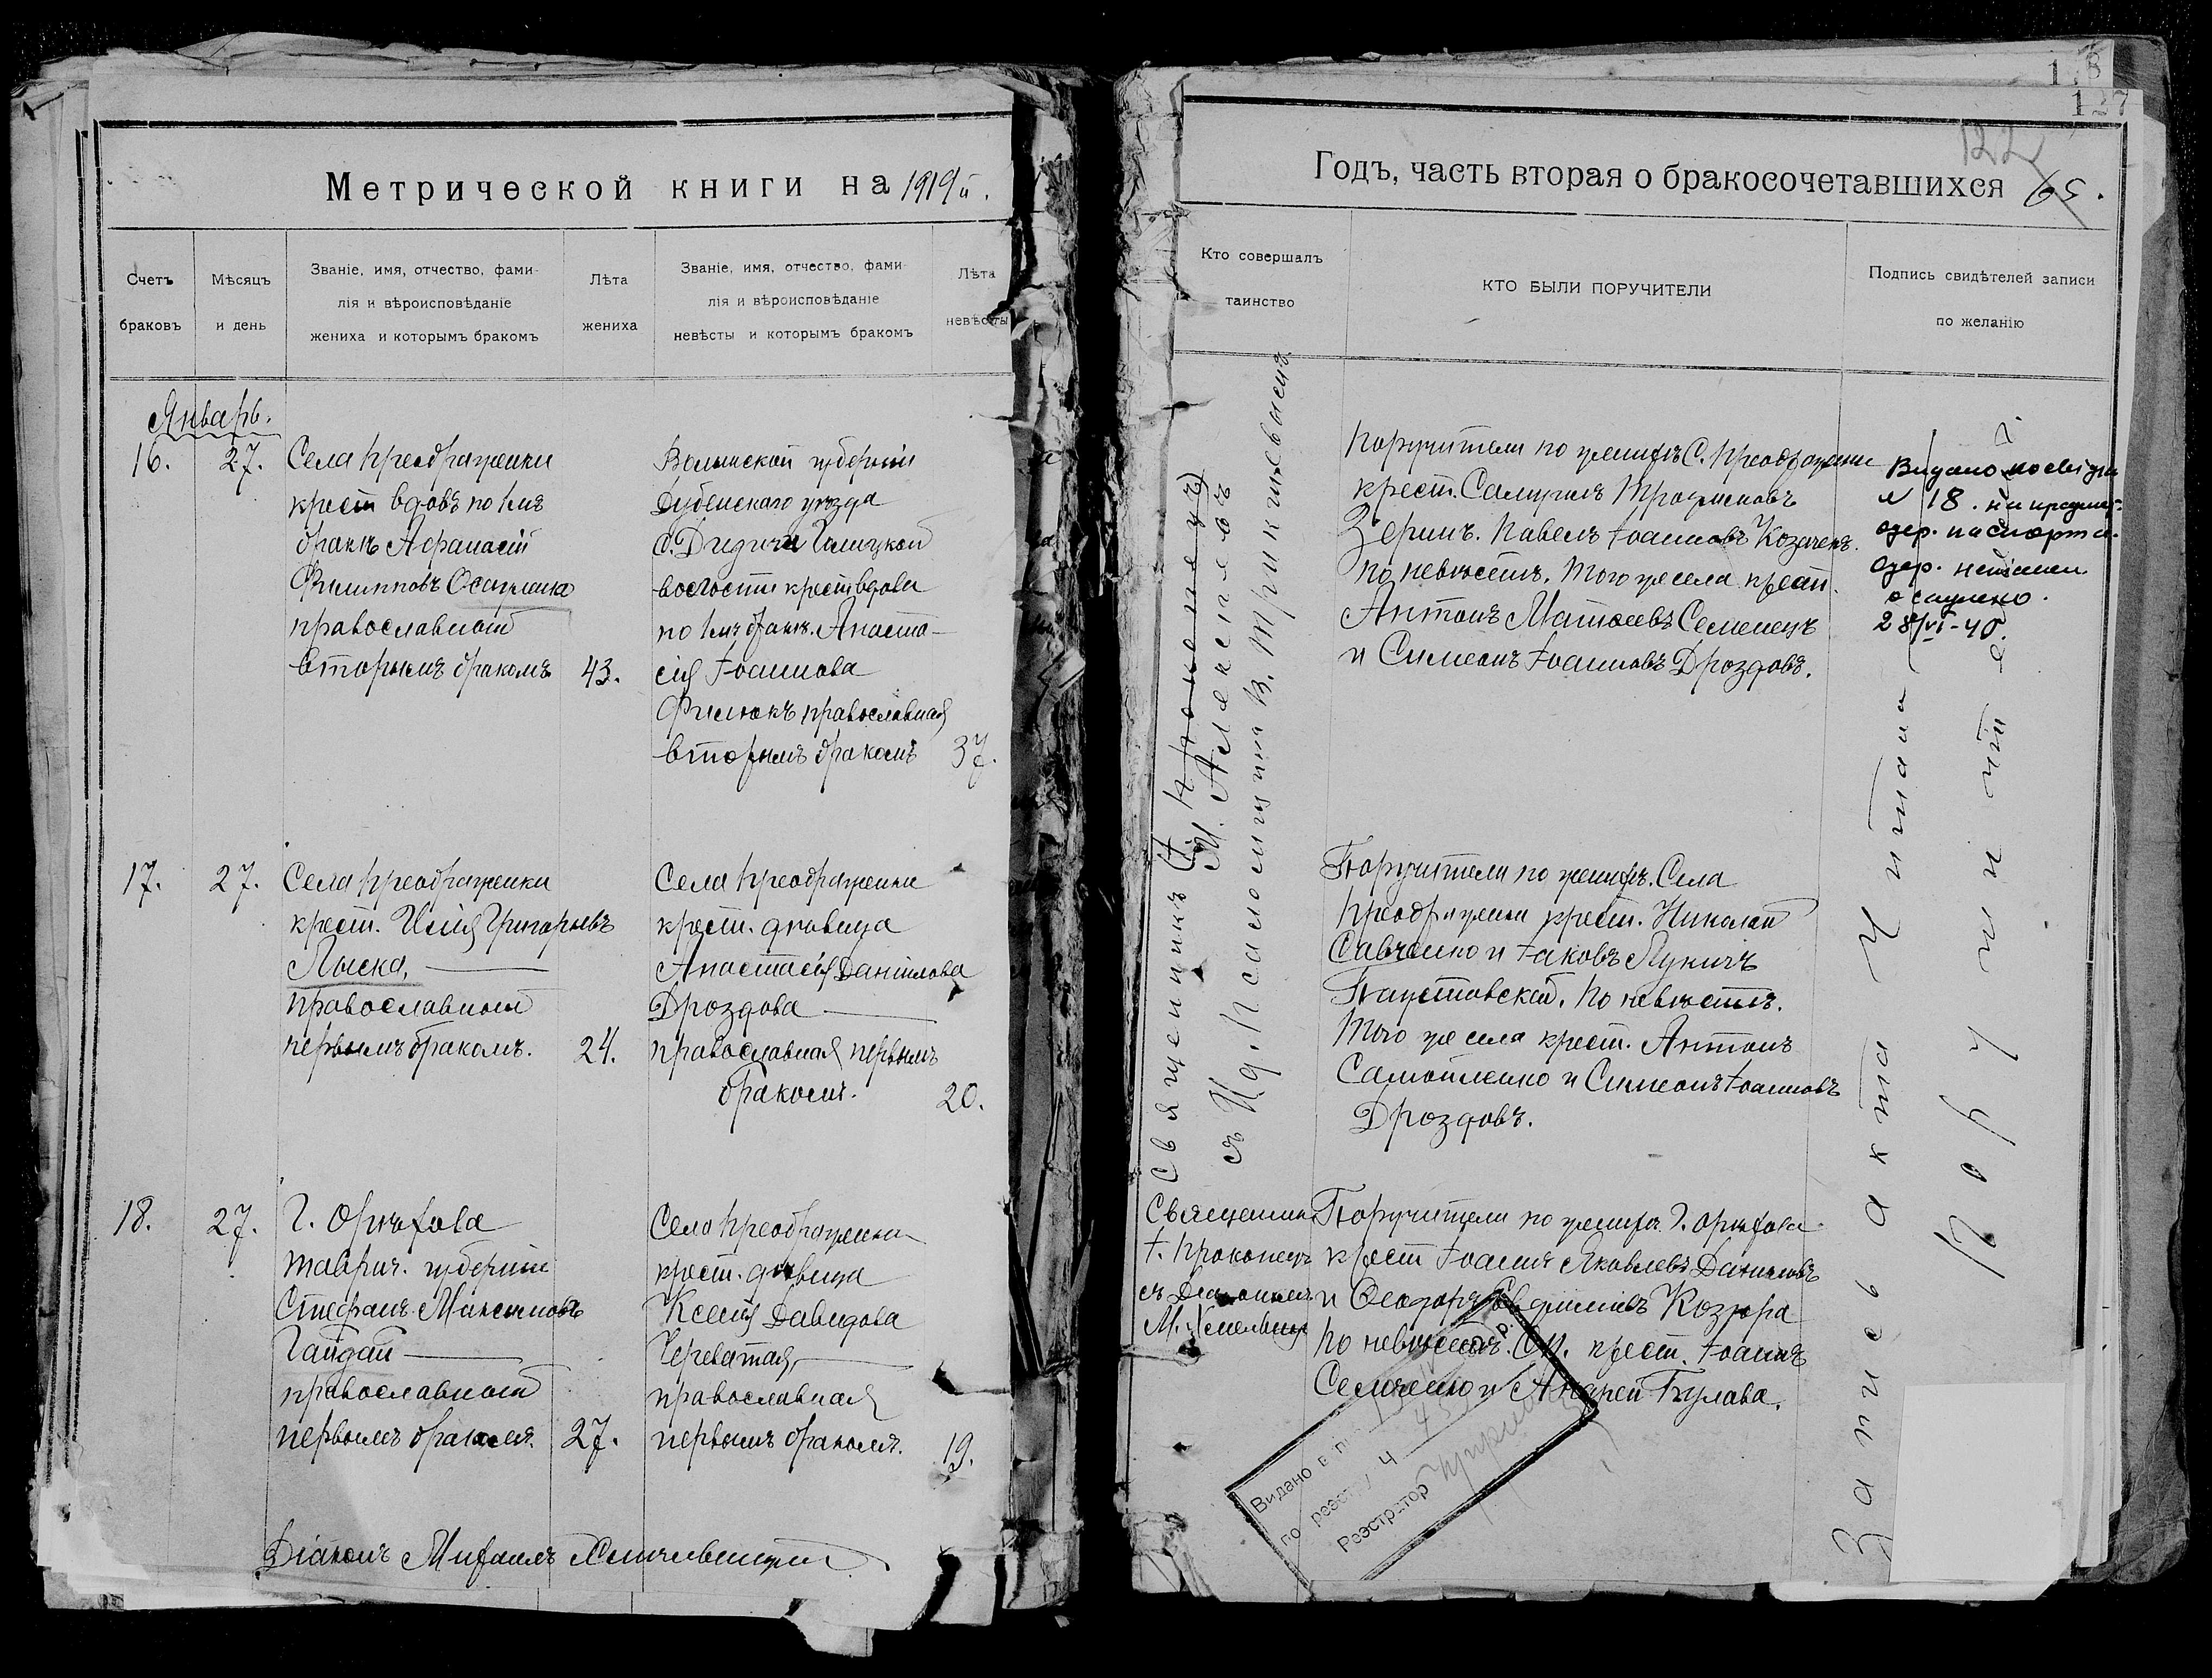 Метрической книги на 1919 й.
Счетъ браковъ
Мѣсяцъ и день
Званіе, имя, отчество, фами-
лія и вѣроисповѣданіе
жениха и которымъ бракомъ
Лѣта
жениха
Званіе, имя, отчество, фами-
лія и вѣроисповѣданіе
невѣсты и которымъ бракомъ
Лѣта
невѣсты
Январь.
16.
27.
Села Преображенки
крест вдовъ по 1мъ
бракѣ Афанасій
Филипповъ
православный
вторымъ бракомъ
43.
Волынской губерніи
Дубенскаго уѣзда
волости крест вдова
по 1мъ бракѣ. Анаста-
сія Іоаннова
Филюкъ православная
вторымъ бракомъ
37.
17.
27.
Села Преображенки
крест. Илія Григорьевъ
Лыска,
православный
первымъ бракомъ.
24.
Села Преображенки
крест. дѣвица
Анастасія Даніилова
Дроздова
православная первымъ
бракомъ.
20.
18.
27.
Г. Орѣхова
Таврич. губерніи
Стефанъ Максимовъ
Гайдай
православный
первымъ бракомъ.
27.
Села Преображенки
крест. дѣвица
Ксенія Давидова
Череватая,
православная
первымъ бракомъ.
19.
Діаконъ Михаилъ
1
127
122
65.
Годъ, часть вторая о бракосочетавшихся
Кто совершалъ
таинство
КТО БЫЛИ ПОРУЧИТЕЛИ
Подпись свидѣтелей записи
по желанію
Священникъ І. Прокопецъ
М. Алексѣевъ
съ И.д. Псаломщика В.
Поручители по женихѣ С. Преображенки
крест. Самуилъ Трофимовъ
Зеринъ. Павелъ Іоанновъ Козаченк.
По невѣстѣ. Того же села крест.
Антонъ Матѳеевъ Семенецъ
и Симеонъ Іоанновъ Дроздовъ.
Видано посвідч
№ 18.
одер. паспорта.
28/VI-40.
Поручители по женихѣ. Села
Преображенки крест. Николай
Савченко и Іаковъ Лукичъ
Паустовскій. По невѣстѣ.
Того же села крест. Антонъ
Самойленко и Симеонъ Іоанновъ
Дроздовъ.
Священник
І. Прокопецъ
съ Діакономъ
Поручители по женихѣ Г. Орѣхова
крест Іоаннъ Яковлевъ Даниловъ
и Ѳеодоръ Козыра
По невѣстѣ. крест. Іоаннъ
Семченко и Андрей Булава.
Видано
по реэстру Ч
Реэстратор
Запись акта читали
Поручители